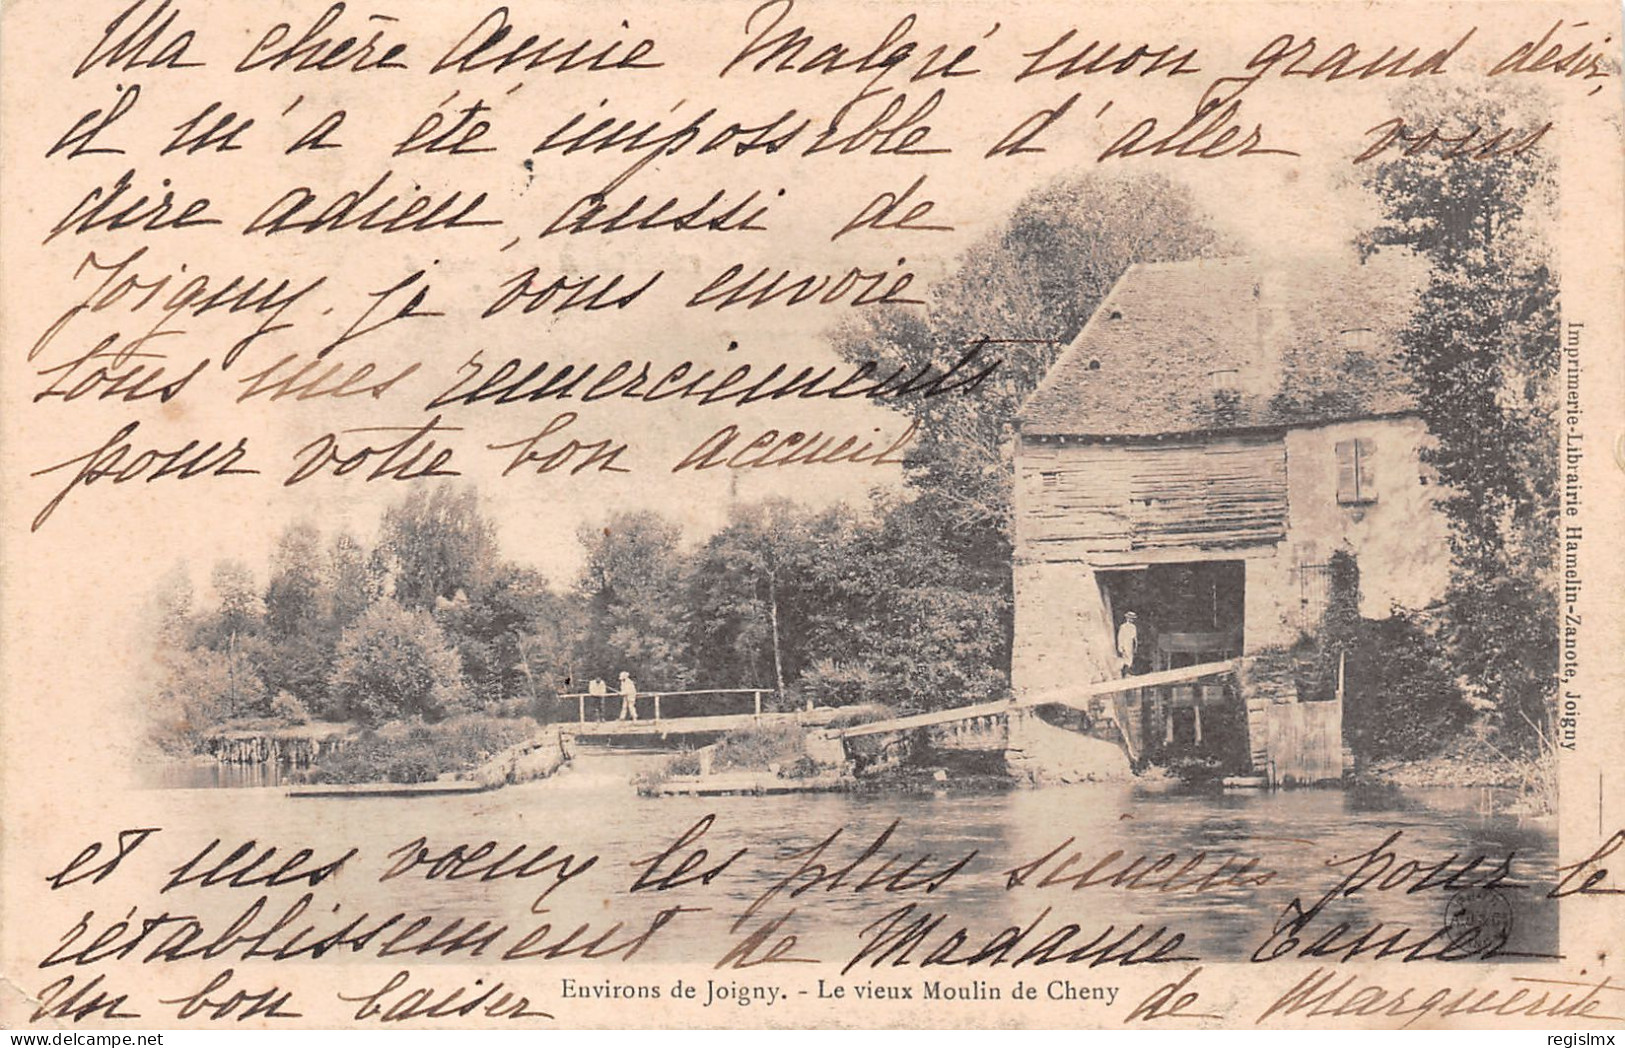 Ma chère Annie Malgré mon grand désir,
il m'a été impossible d'aller vous
dire adieu, aussi de
Joigny. je vous envoie
tous mes remerciements
pour votre bon accueil
Imprimerie-Librairie Hamelin-Zanote, Joigny
et mes vœux les plus sincères pour le
rétablissement de Madame
Un bon baiser de Marguerite
Environs de Joigny. - Le vieux Moulin de Cheny
delcampe.net
regislmx